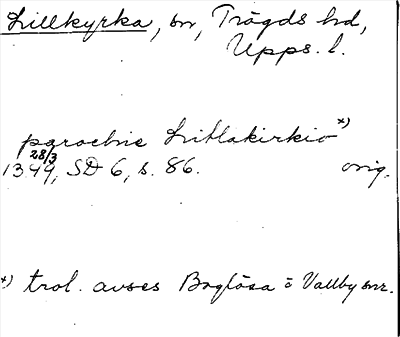 Lillkyrka, sn, Trögds hd,
Upps. l.
parochie Litlakirkio x)
28/3
1344, SD 6, s. 86. orig.
x) trol. avses Boglösa o Vallby snr.